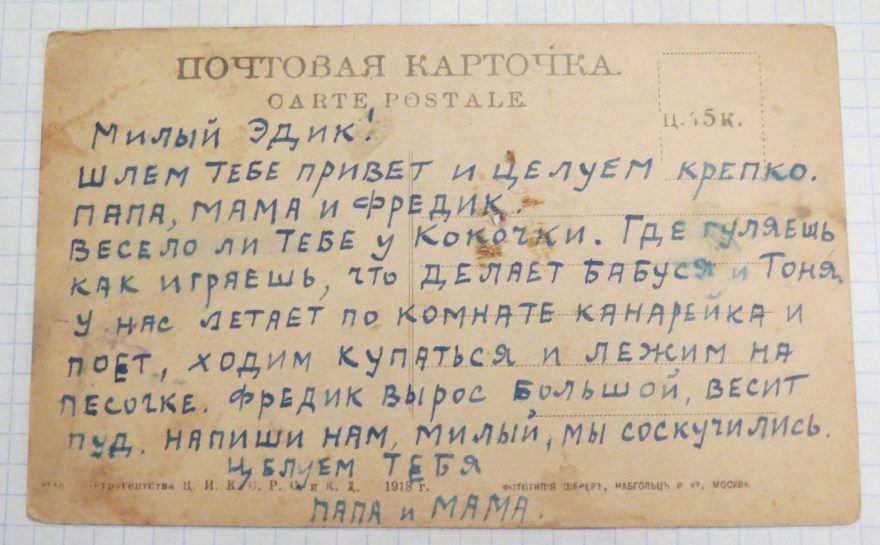 ПОЧТОВАЯ КАРТОЧКА.
CARTE POSTALE
Ц. 15 к.
Милый Эдик!
шлем тебе привет и целуем крепко.
папа, мама и Фредик.
весело ли тебе у Кокочки. Где гуляешь
как играешь, что делает бабуся и Тоня.
у нас летает по комнате канарейка и
поет, ходим купаться и лежим на
песочке. Фредик вырос большой, весит
пуд. напиши нам, милый, мы соскучились.
целуем тебя
Ц. И. К. С. Р. и К. Д. 1918 г.
ФОТОТИПІЯ ШЕРЕРЪ, НАБГОЛЬЦЪ И К°. МОСКВА
папа и мама.